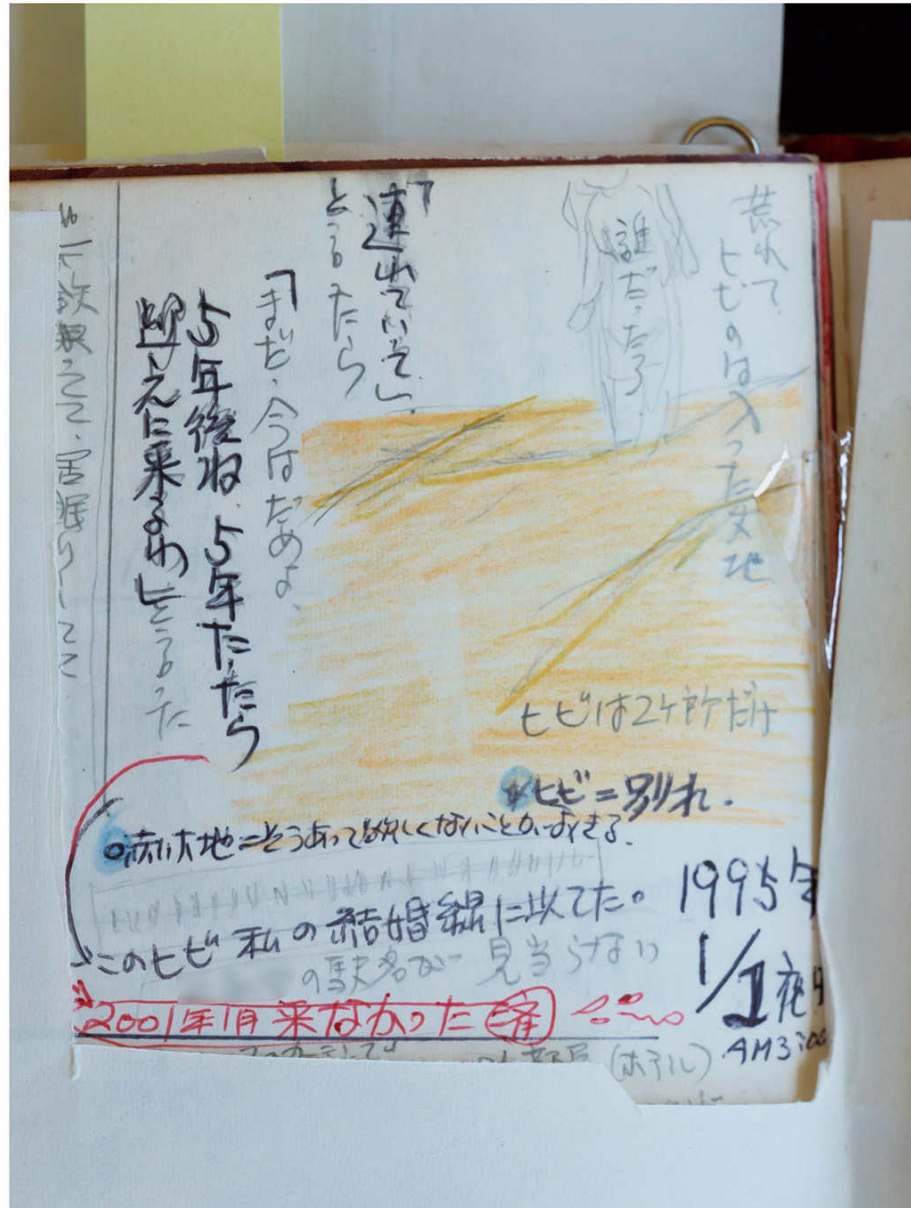 荒れて
ヒビのは入った大地
誰だったろう
「連れていて」
と言ったら
「まだ、今はだめよ、
5年後ね、5年たったら
迎えに来るわ」と言った
居眠りしてて
ヒビは2ヶ所だけ
ヒビ=別れ.
赤い大地=そうあって欲しくないことがおきる.
このヒビ私の結婚線に似てた。
の駅名が見当らない
1995年
1/2夜明
AM3:00
2001年1月来なかった 済
(ホテル)